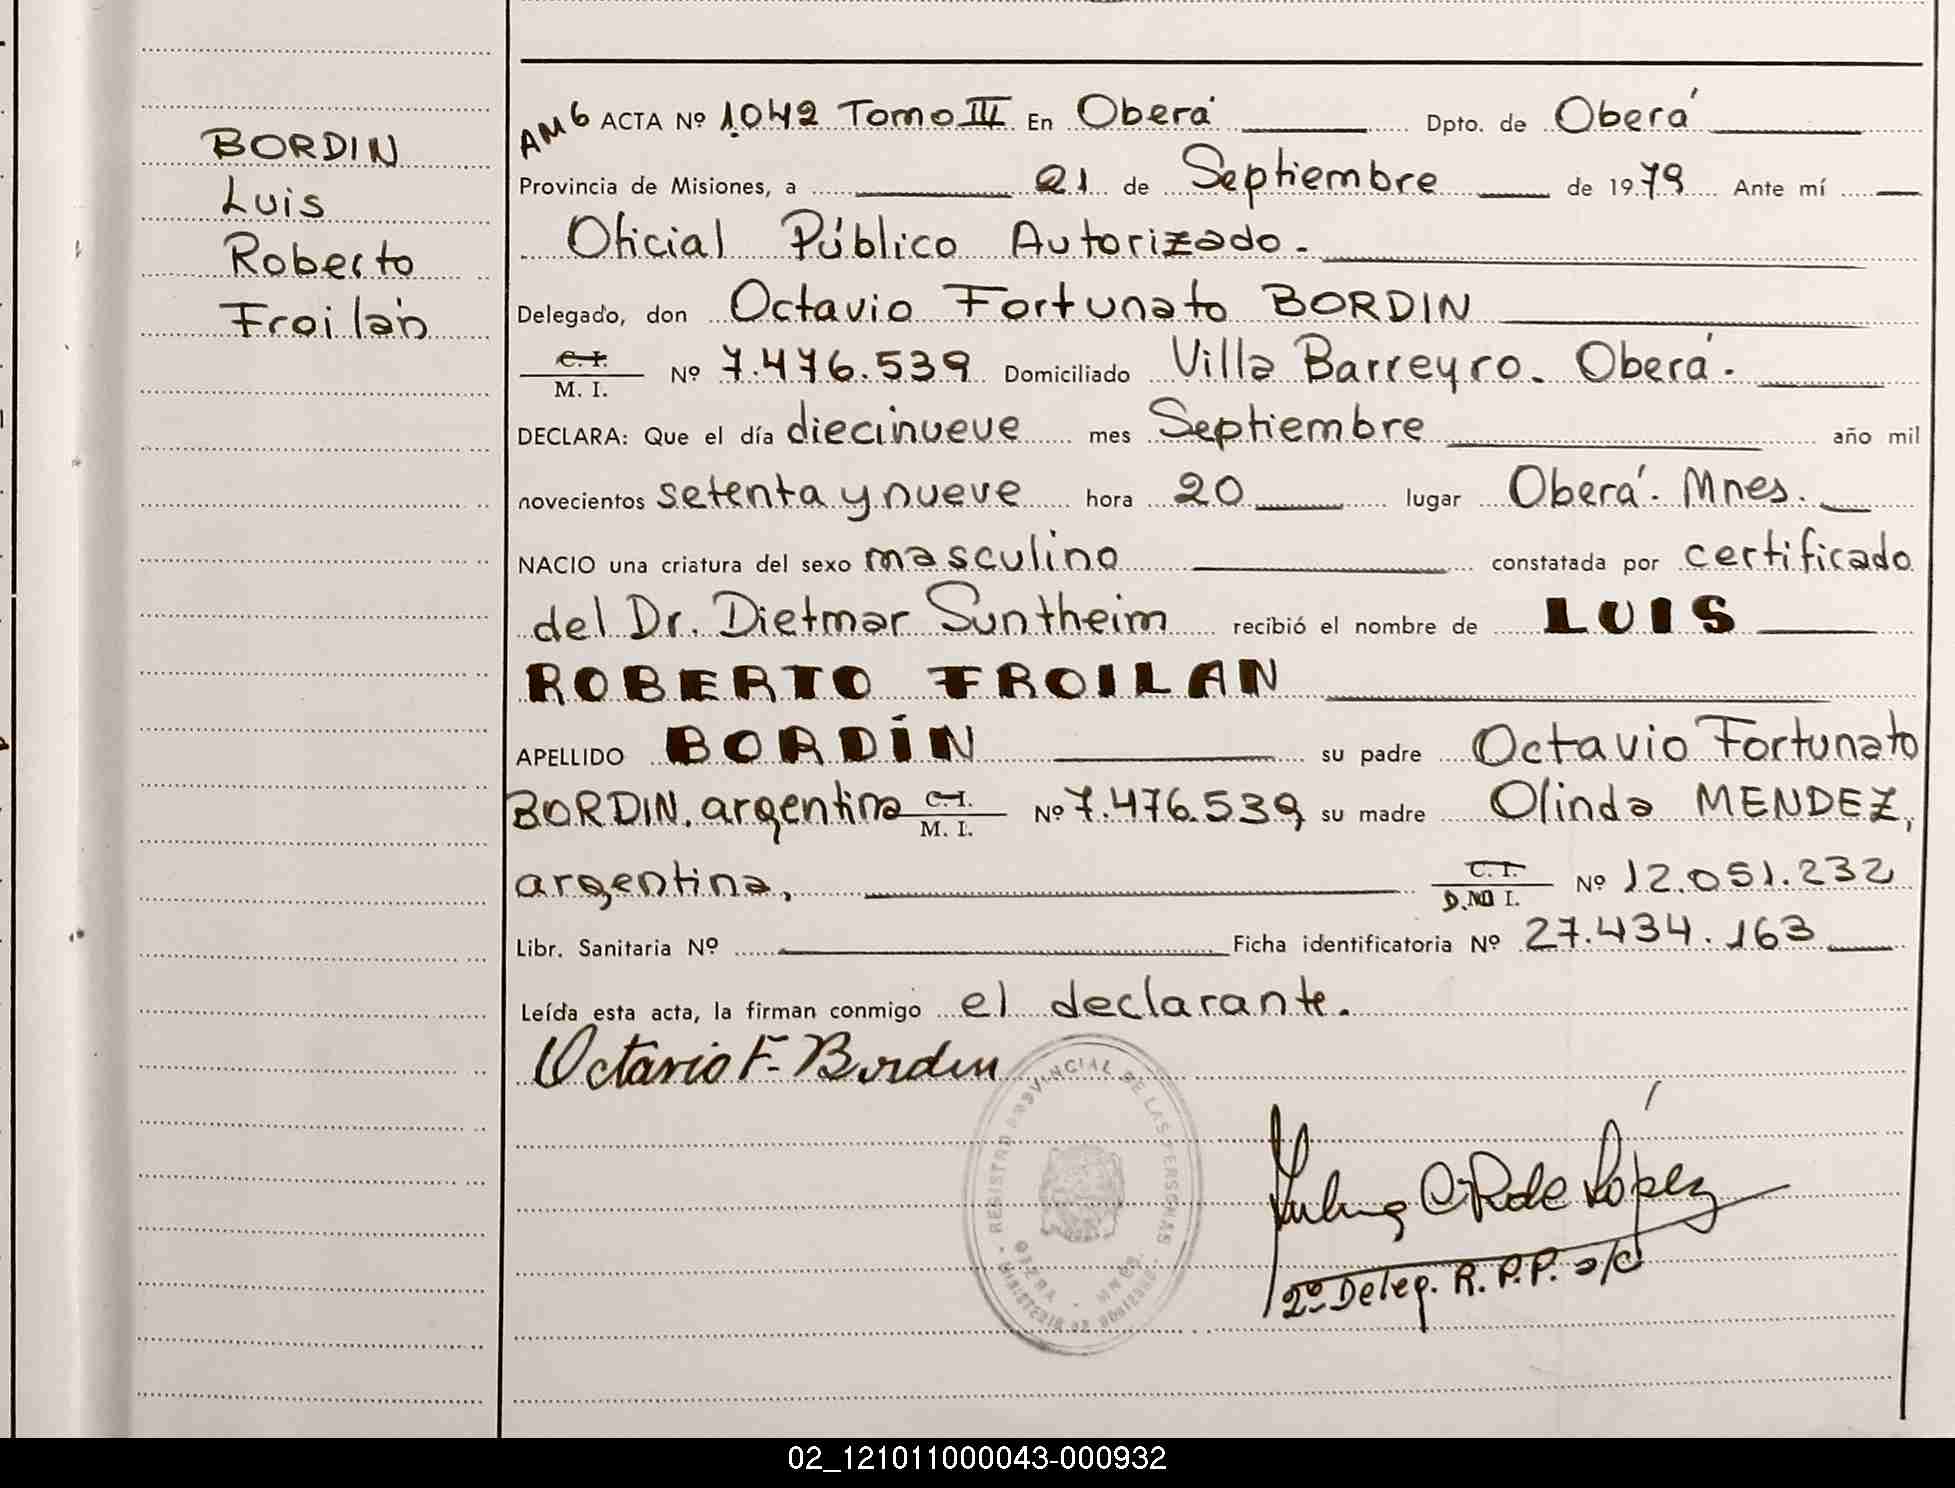 BORDIN
Luis
Roberto
Froilán
AM6 ACTA Nº 1.042 Tomo III En Oberá Dpto. de Oberá
Provincia de Misiones, a 21 de Septiembre de 1979 Ante mí
Oficial Público Autorizado.
Delegado, don Octavio Fortunato BORDIN
C. I.
M. I. Nº 7.476.539 Domiciliado Villa Barreyro. Oberá.
DECLARA: Que el día diecinueve mes Septiembre año mil
novecientos setenta y nueve hora 20 lugar Oberá. Mnes.
NACIO una criatura del sexo masculino constatada por certificado
del Dr. Dietmar Suntheim recibió el nombre de LUIS
ROBERTO FROILAN
APELLIDO BORDÍN su padre Octavio Fortunato
BORDIN, argentina C. I. M. I. Nº 7.476.539 su madre Olinda MENDEZ,
argentina, C. I. D.N I. Nº 12.051.232
Libr. Sanitaria Nº Ficha identificatoria Nº 27.434.163
Leída esta acta, la firman conmigo el declarante.
Octavio F. Bordin
REGISTRO PROVINCIAL DE LAS PERSONAS
OBERA - MNES.
MINISTERIO DE GOBIERNO
de López
2º Deleg. R.P.P. a/c
02_121011000043-000932